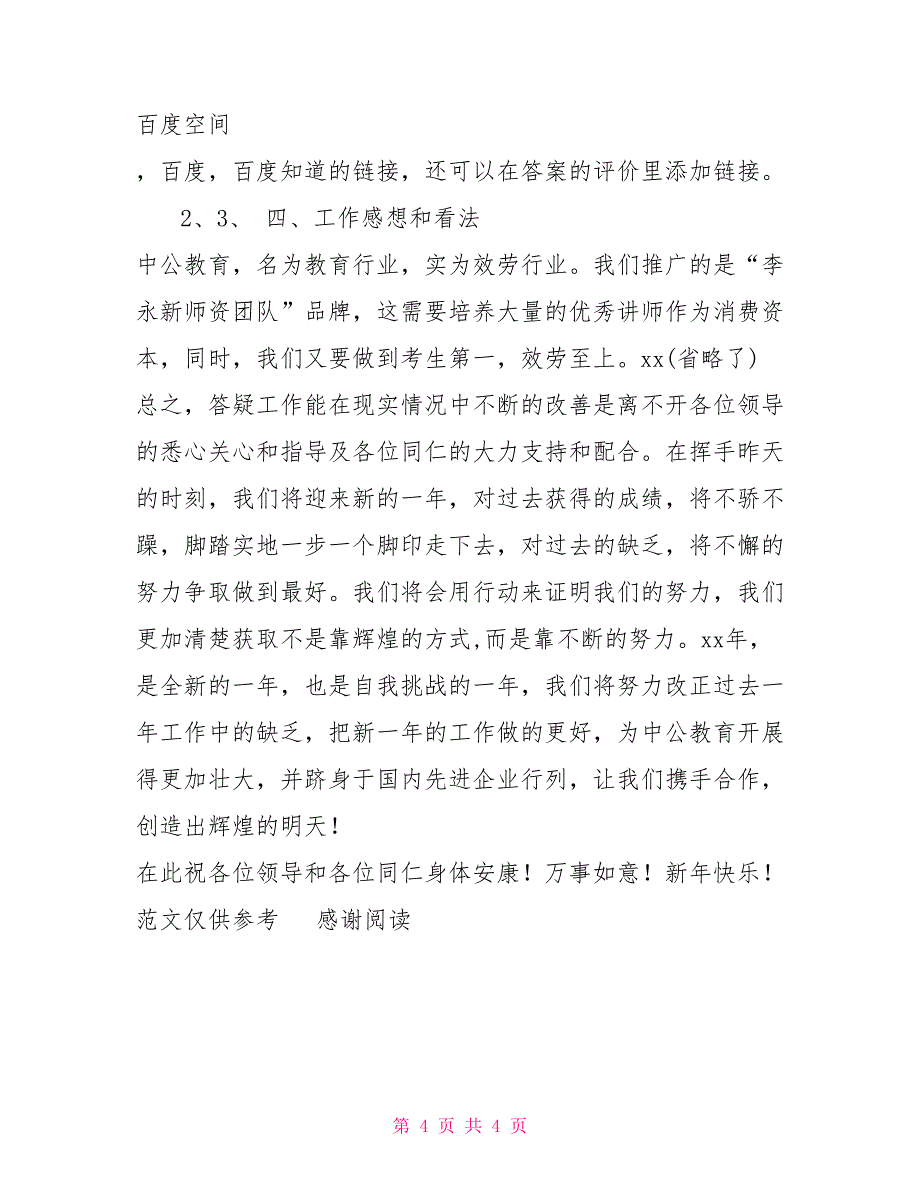 百度空间
，百度，百度知道的链接，还可以在答案的评价里添加链接。
2、3、 四、工作感想和看法
中公教育，名为教育行业，实为效劳行业。我们推广的是“李
永新师资团队”品牌，这需要培养大量的优秀讲师作为消费资
本，同时，我们又要做到考生第一，效劳至上。xx(省略了)
总之，答疑工作能在现实情况中不断的改善是离不开各位领导
的悉心关心和指导及各位同仁的大力支持和配合。在挥手昨天
的时刻，我们将迎来新的一年，对过去获得的成绩，将不骄不
躁，脚踏实地一步一个脚印走下去，对过去的缺乏，将不懈的
努力争取做到最好。我们将会用行动来证明我们的努力，我们
更加清楚获取不是靠辉煌的方式,而是靠不断的努力。xx年，
是全新的一年，也是自我挑战的一年，我们将努力改正过去一
年工作中的缺乏，把新一年的工作做的更好，为中公教育开展
得更加壮大，并跻身于国内先进企业行列，让我们携手合作，
创造出辉煌的明天！
在此祝各位领导和各位同仁身体安康！万事如意！新年快乐！
范文仅供参考 感谢阅读
第 4 页 共 4 页